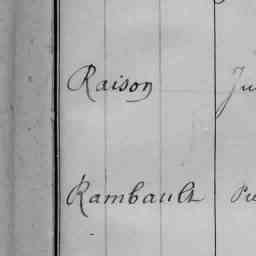 Raison Ju
Rambault Pie